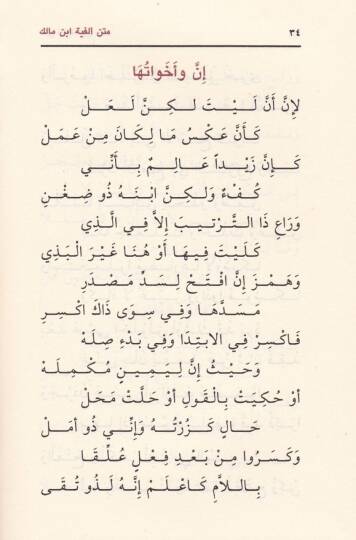 ٣٤ متن ألفية ابن مالك
إِنَّ وأَخَوَاتُهَا
لِإِنَّ أَنَّ لَيْتَ لَكِنَّ لَعَلْ
كَأَنَّ عَكْسُ مَا لِكَانَ مِنْ عَمَلْ
كَإِنَّ زَيْداً عَالِمٌ بِأَنِّي
كُفْءٌ وَلَكِنَّ ابْنَهُ ذُو ضِغْنِ
وَرَاعِ ذَا التَّرْتِيبَ إِلاَّ فِي الَّذِي
كَلَيْتَ فِيهَا أَوْ هُنَا غَيْرَ الْبَذِي
وَهَمْزَ إِنَّ افْتَحْ لِسَدِّ مَصْدَرِ
مَسَدَّهَا وَفِي سِوَى ذَاكَ اكْسِرِ
فَاكْسِرْ فِي الابْتِدَا وَفِي بَدْءِ صِلَهْ
وَحَيْثُ إِنَّ لِيَمِينٍ مُكْمِلَهْ
أَوْ حُكِيَتْ بِالْقَوْلِ أَوْ حَلَّتْ مَحَلْ
حَالٍ كَزُرْتُهُ وَإِنِّي ذُو أَمَلْ
وَكَسَرُوا مِنْ بَعْدِ فِعْلٍ عُلِّقَا
بِاللاَّمِ كَاعْلَمْ إِنَّهُ لَذُو تُقَى